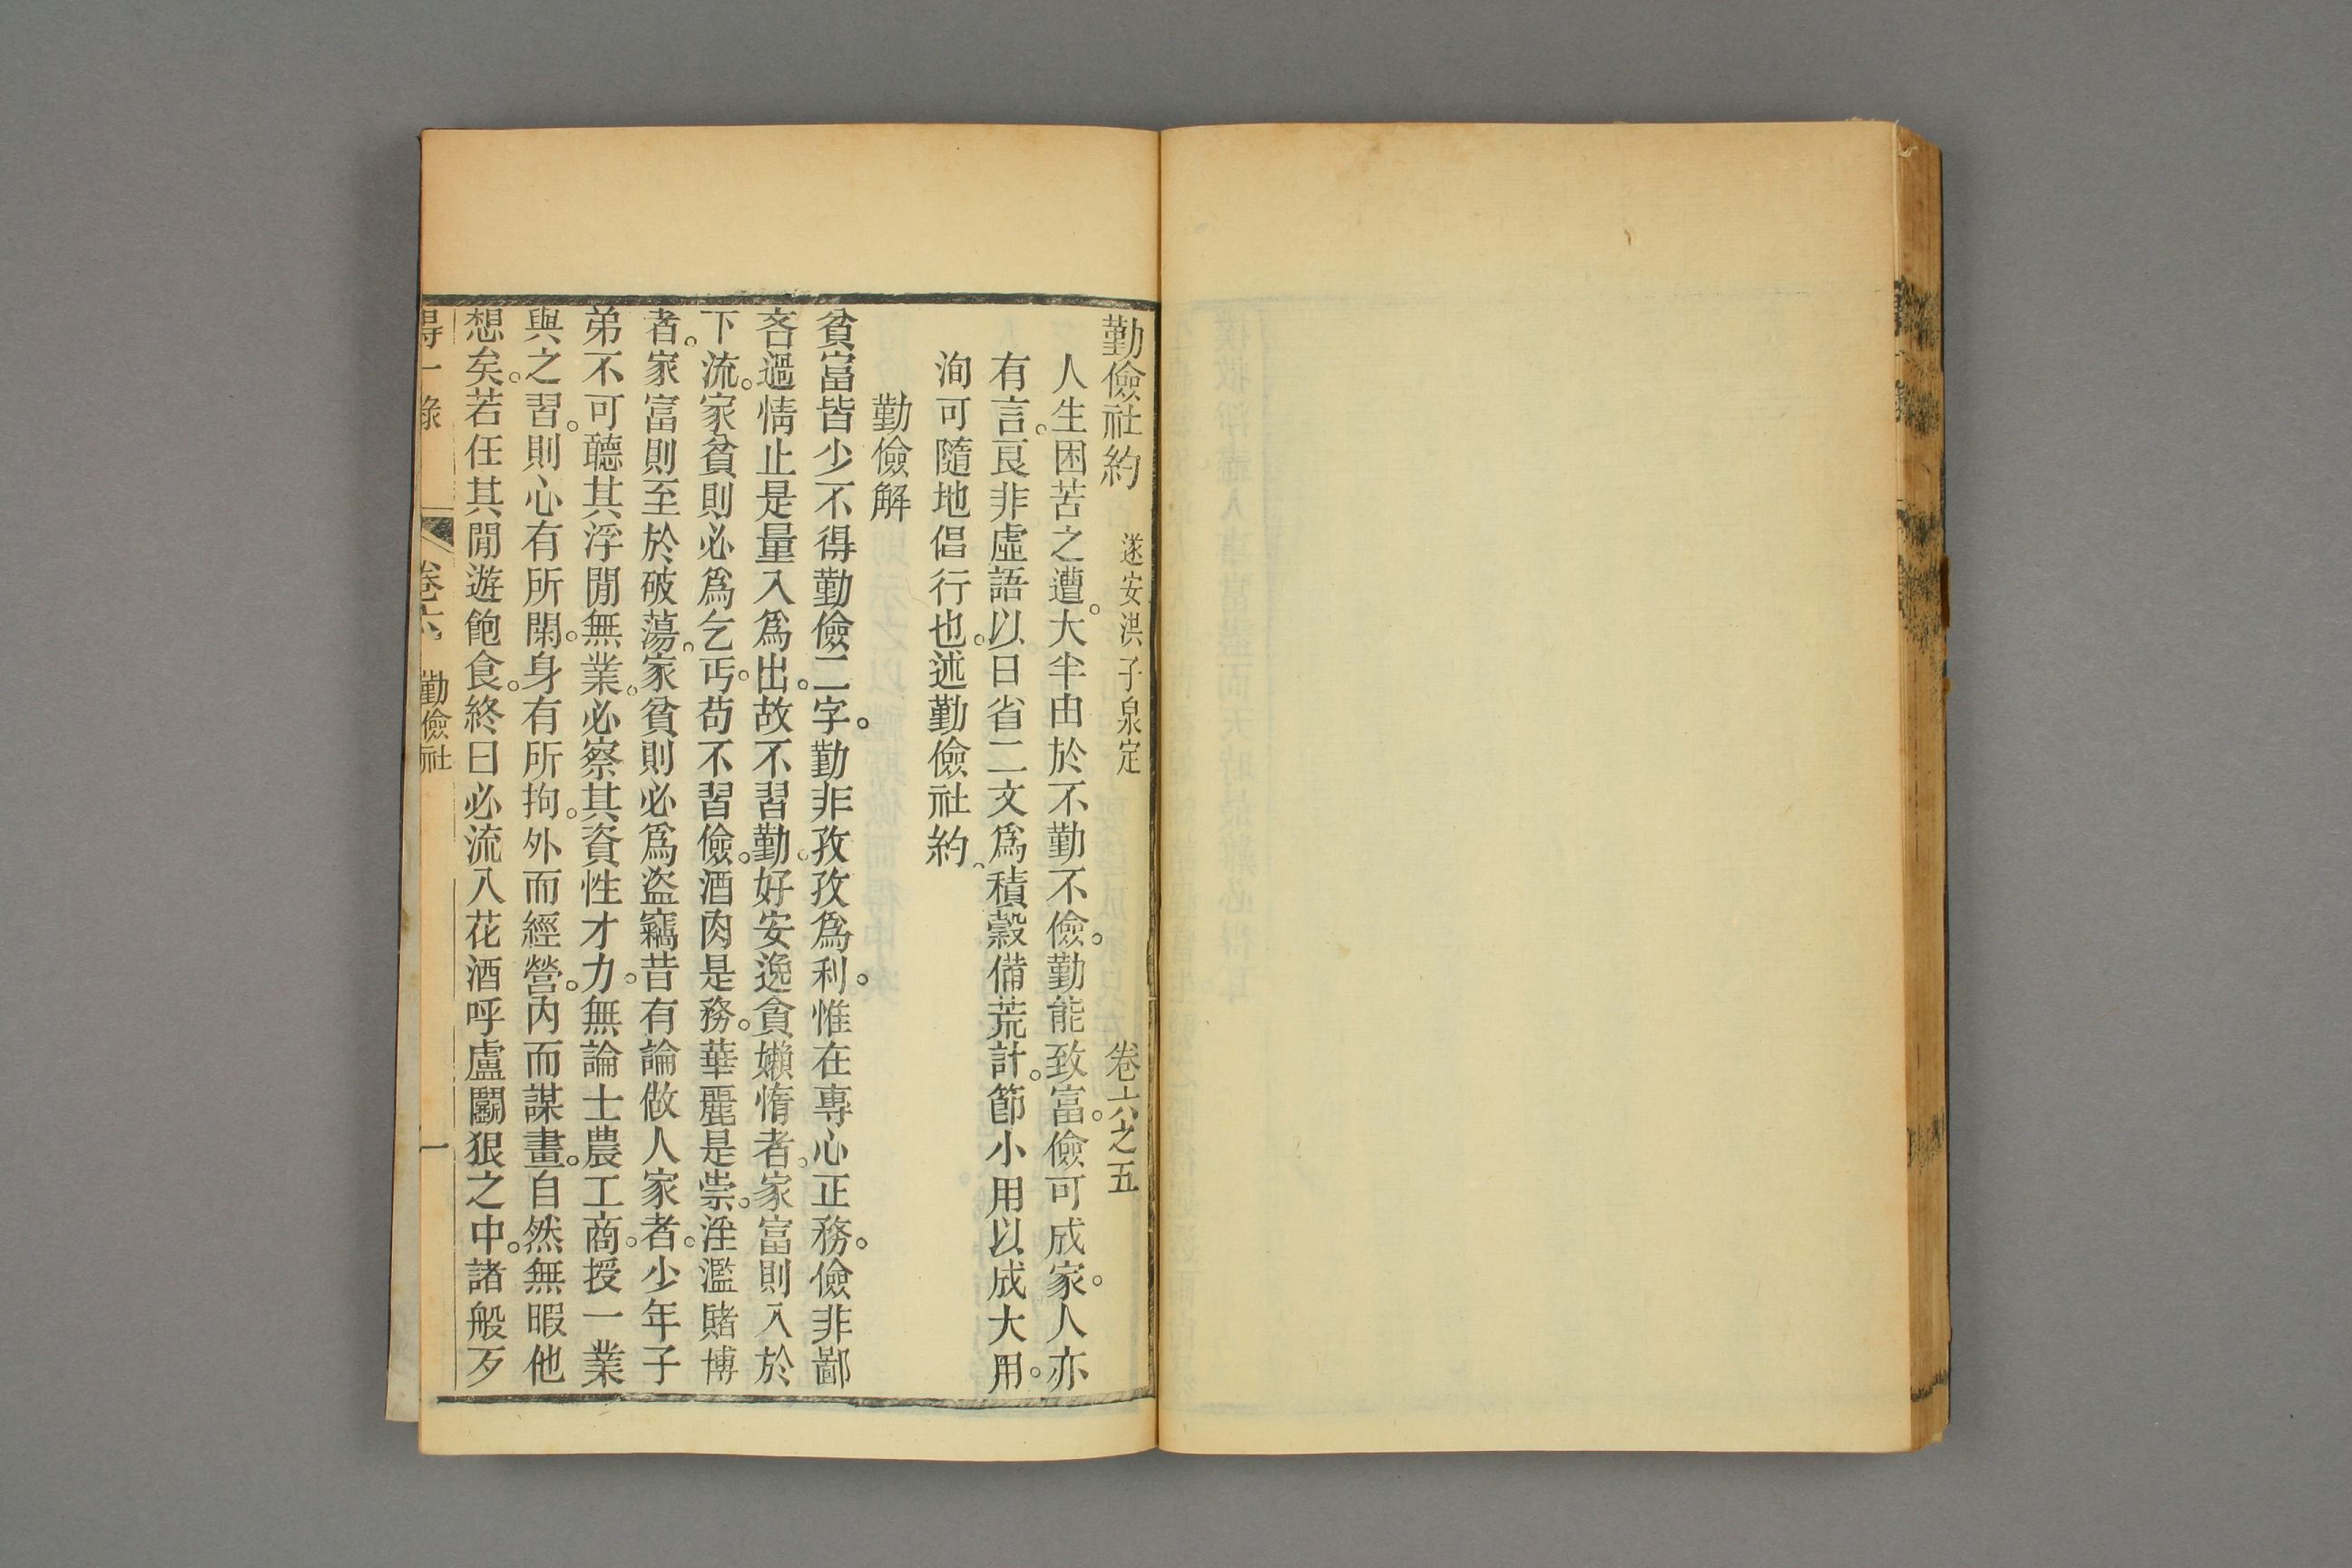 勤儉社約 遂安洪子泉定 卷六之五
人生困苦之遭。大半由於不勤不儉。勤能致富。儉可成家。人亦
有言。良非虛語以日省二文爲積穀備荒計。節小用以成大用。
洵可隨地倡行也。述勤儉社約。
勤儉解
貧富皆少不得勤儉二字。勤非孜孜爲利。惟在專心正務。儉非鄙
吝過情止是量入爲出。故不習勤。好安逸貪嬾惰者。家富則入於
下流。家貧則必爲乞丐。苟不習儉。酒肉是務。華麗是崇。淫濫賭博
者。家富則至於破蕩。家貧則必爲盜竊昔有論做人家者。少年子
弟不可聽其浮閒無業。必察其資性才力。無論士農工商。授一業
與之習。則心有所閑。身有所拘。外而經營。內而謀畫。自然無暇他
想矣。若任其閒遊飽食。終日必流入花酒呼盧鬬狠之中。諸般歹
得一錄 卷六 勤儉社 一